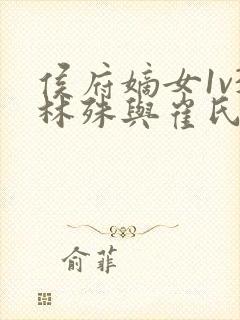 侯府嫡女1v
林殊與崔氏
俞菲